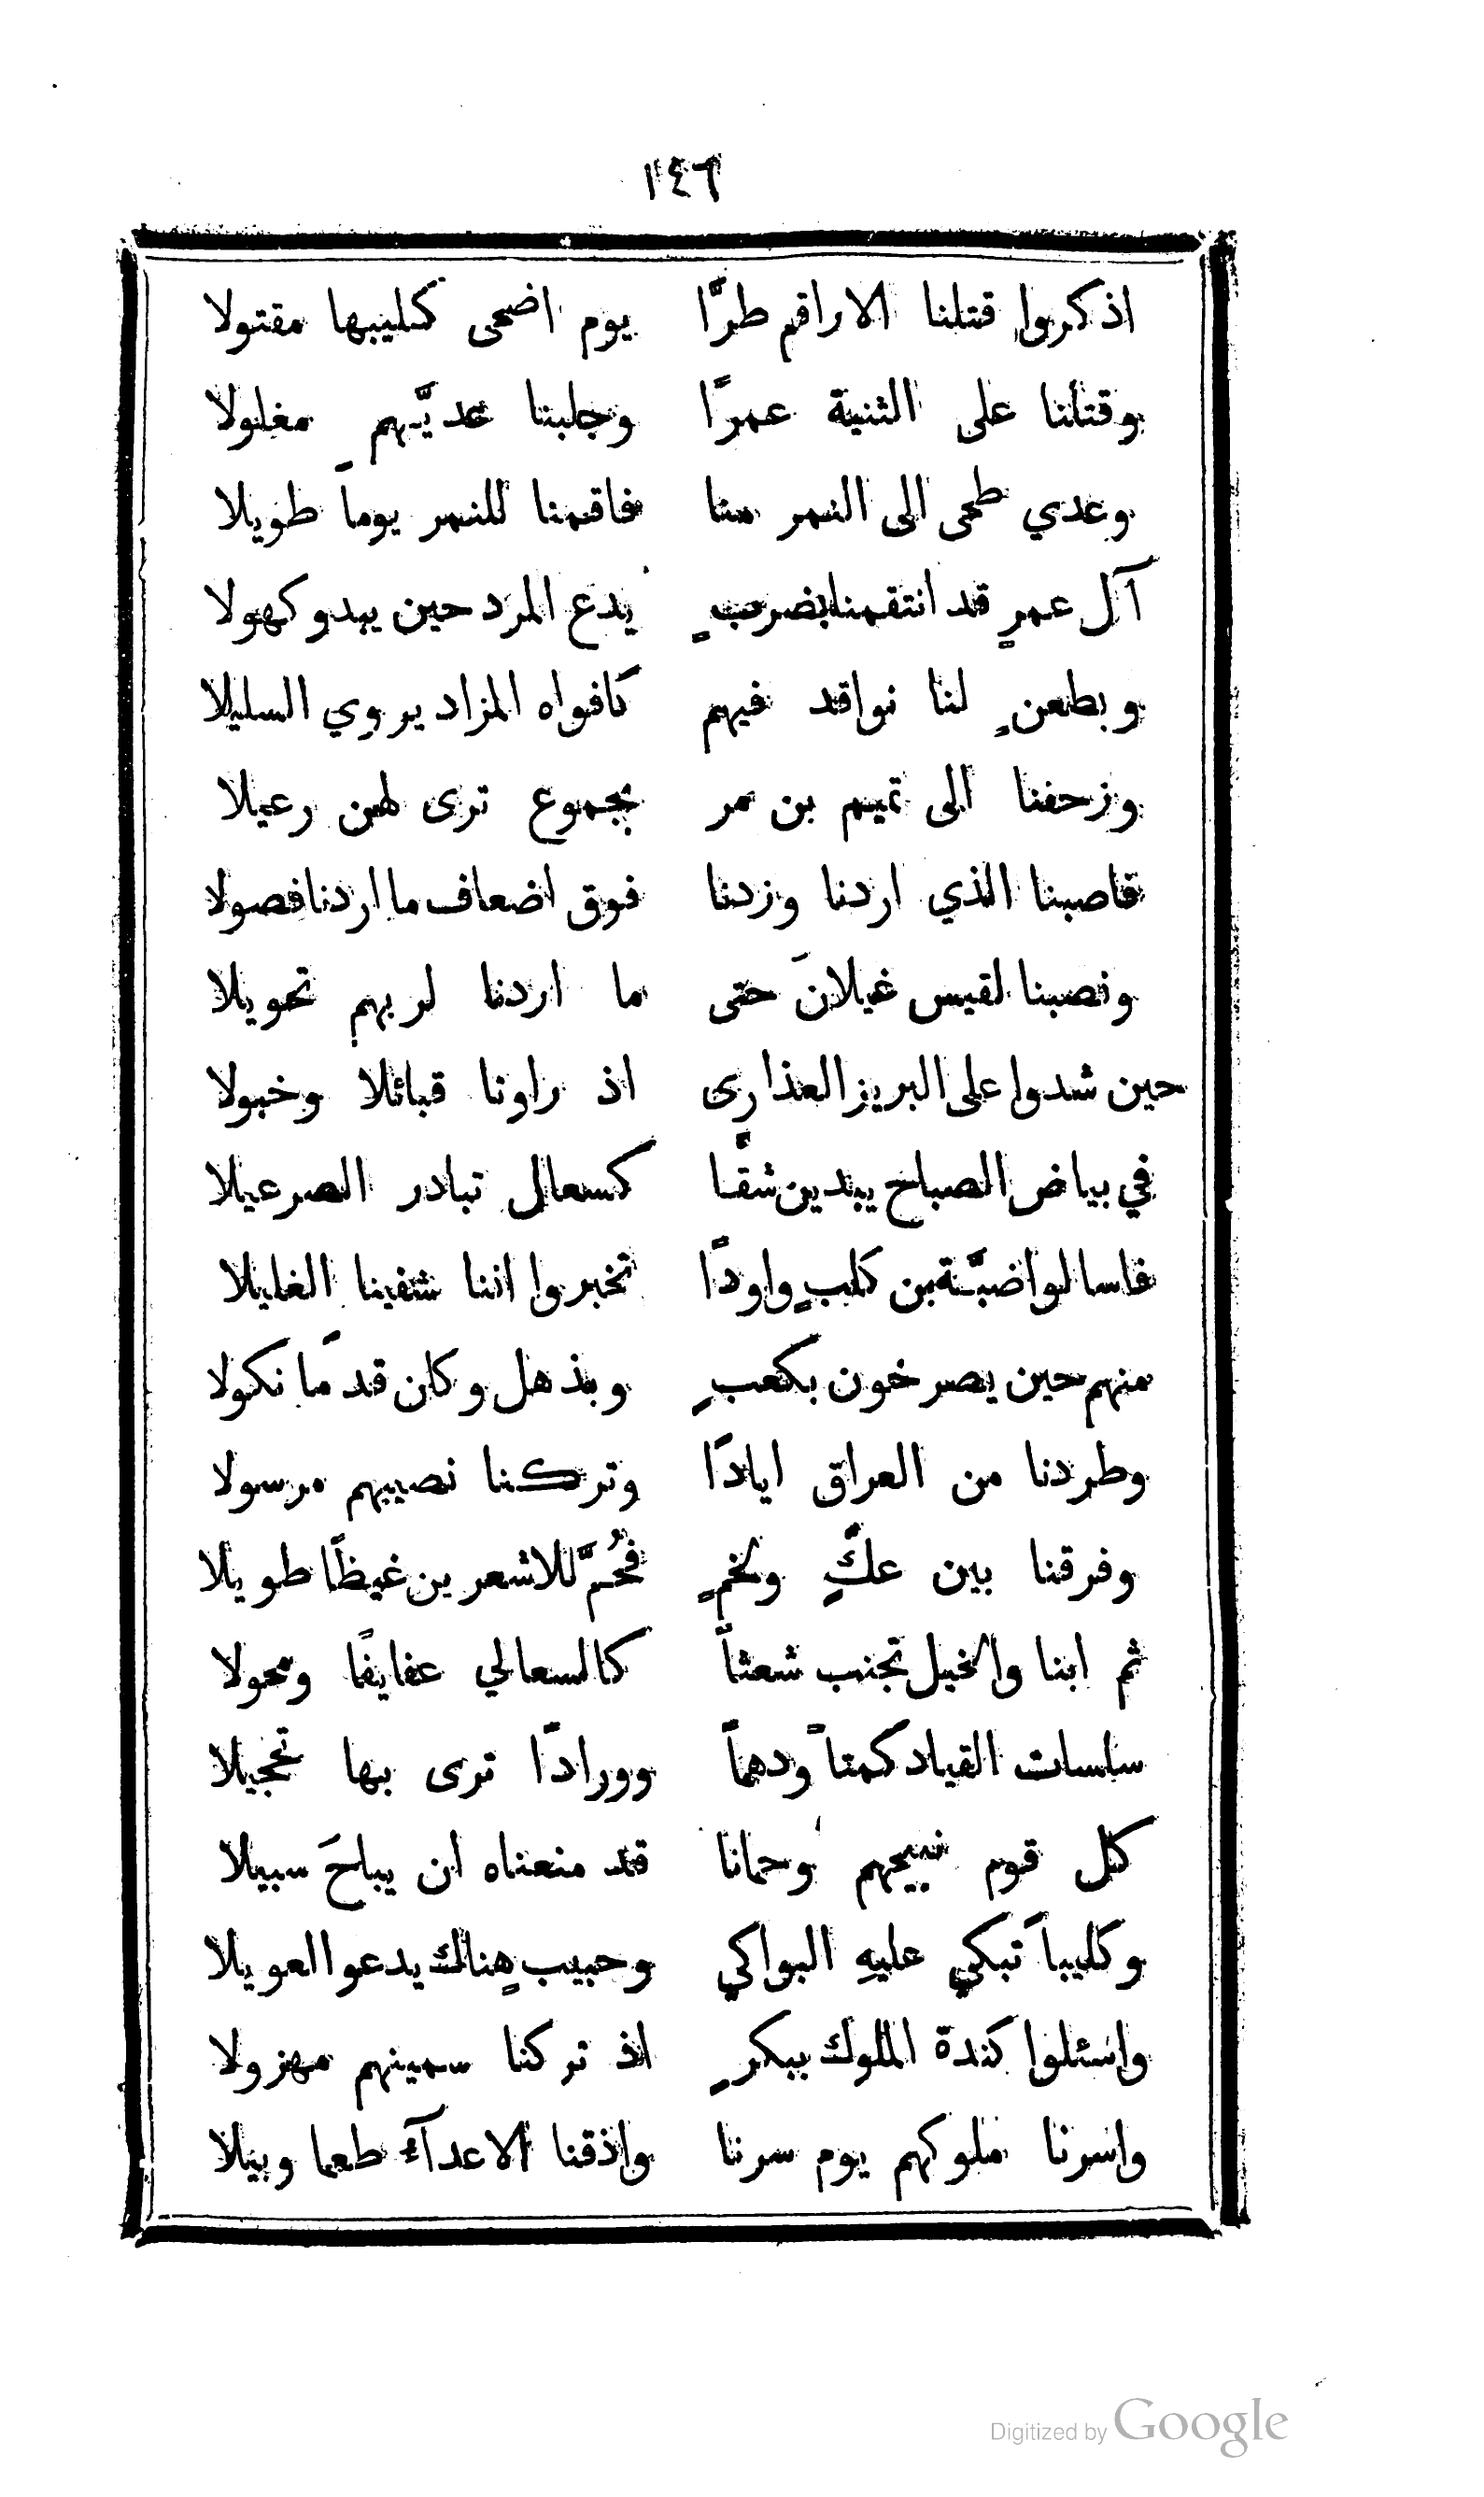 ١٤٦
اذكروا قتلنا الاراقم طرًّا يوم اضحى كليبها مقتولا
وقتلنا على الثنية عمرًا وجلبنا عديَّهم مغلولا
وعدي طحى الى النمر منا فاقمنا للنمر يوماً طويلا
آل عمرٍ قد انتقمنا بضربٍ يدع المرد حين يبدو كهولا
وبطعنٍ لنا نواقد فيهم كافواه المزاد يروي السليلا
وزحفنا الى تميم بن مر بجموع ترى لهن رعيلا
فاصبنا الذي اردنا وزدنا فوق اضعاف ما اردنا فصولا
ونصبنا لقيس غيلانَ حتى ما اردنا لربهم تحويلا
حين شدوا على البريز العذارى اذ راونا قبائلا وخبولا
في بياض الصباح يبدين شقًا كسعال تبادر الصرعيلا
فاسالوا ضبَّة بن كلبٍ واودًا تخبروا اننا شفينا الغليلا
منهم حين يصرخون بكعبٍ وبذهل وكان قدمًا نكولا
وطردنا من العراق ايادًا وتركنا نصيبهم مرسولا
وفرقنا بين عكٍّ ولخمٍ فحُمَّ للاشعرين غيظًا طويلا
ثم ابنا والخيل تجنب شعثاً كالسعالي عفايفًا ومحولا
سلسات القياد كمتاً ودهماً وورادًا ترى بها تحجيلا
كل قوم نبيحهم وحمانا قد منعناه ان يباحَ سبيلا
وكليباً تبكي عليهِ البواكي وحبيبٍ هناك يدعوا العويلا
واسئلوا كندة الملوك ببكرٍ اذ تركنا سمينهم مهزولا
واسرنا ملوكهم يوم سرنا واذقنا الاعدآء طعما وبيلا
Digitized by Google